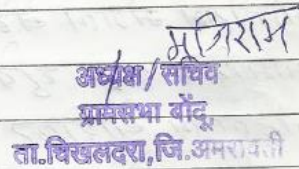 मुनिराम
अध्यक्ष/सचिव
ग्रामसभा बोंदू,
ता.चिखलदरा,जि.अमरावती